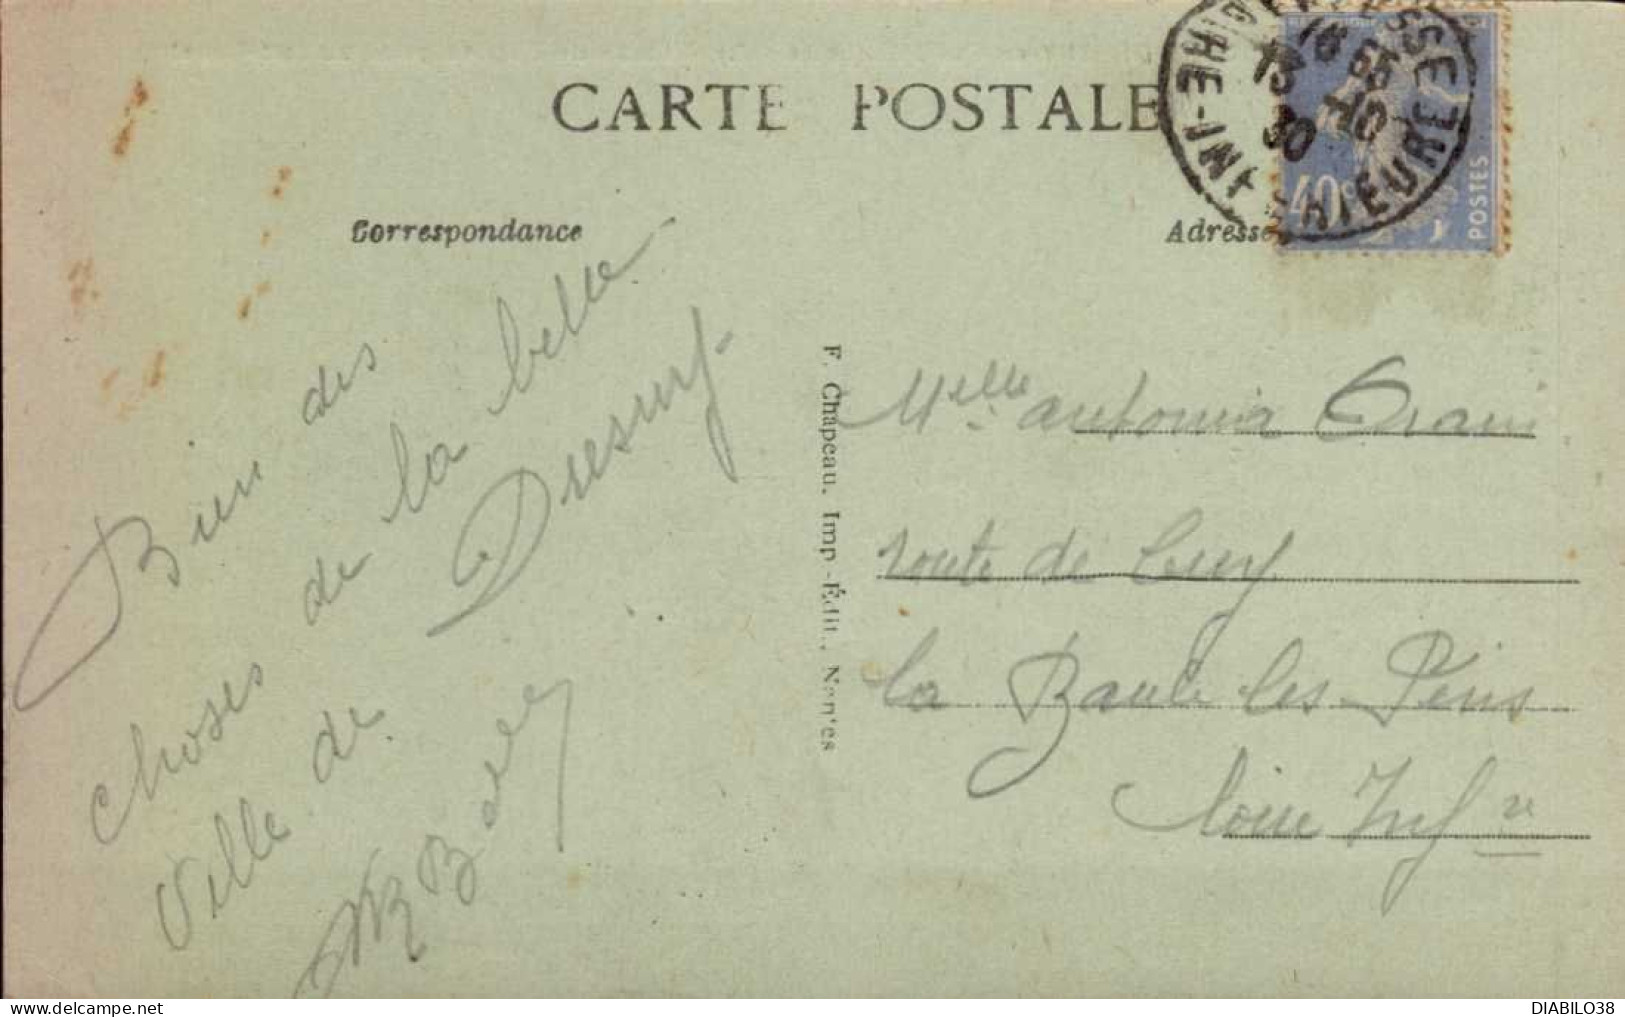 CARTE POSTALE
Correspondance
Adresse
40c
POSTES
INFÉRIEURE
13
30
10
F. Chapeau. Imp.-Édit., Nantes
Bien des
choses de la belle
Ville de
Melle antonia
route de
la Baule les Pins
Loire Infre
DIABILO38